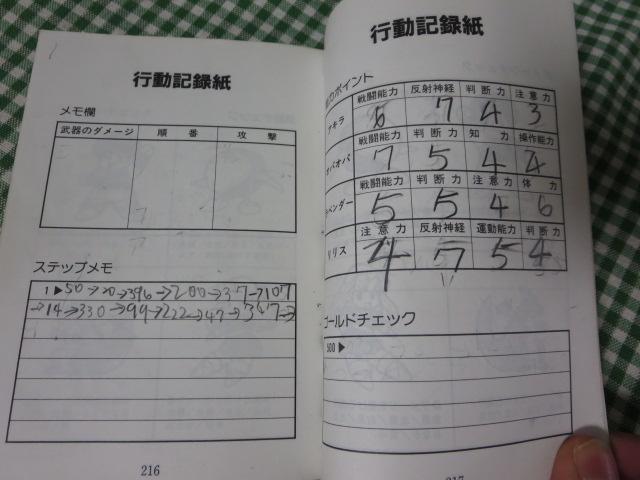 行動記録紙
メモ欄
武器のダメージ 順番 攻撃
ステップメモ
1▶50→20→396→200→37→107
→14→330→99→222→47→367→
216
行動記録紙
ポイント
戦闘能力 反射神経 判断力 注意力
アキラ 6 7 4 3
戦闘能力 判断力 知力 操作能力
オパオパ 7 5 4 4
戦闘能力 判断力 注意力 体力
ベンダー 5 5 4 6
注意力 反射神経 運動能力 判断力
リリス 4 7 5 4
ゴールドチェック
500▶
217